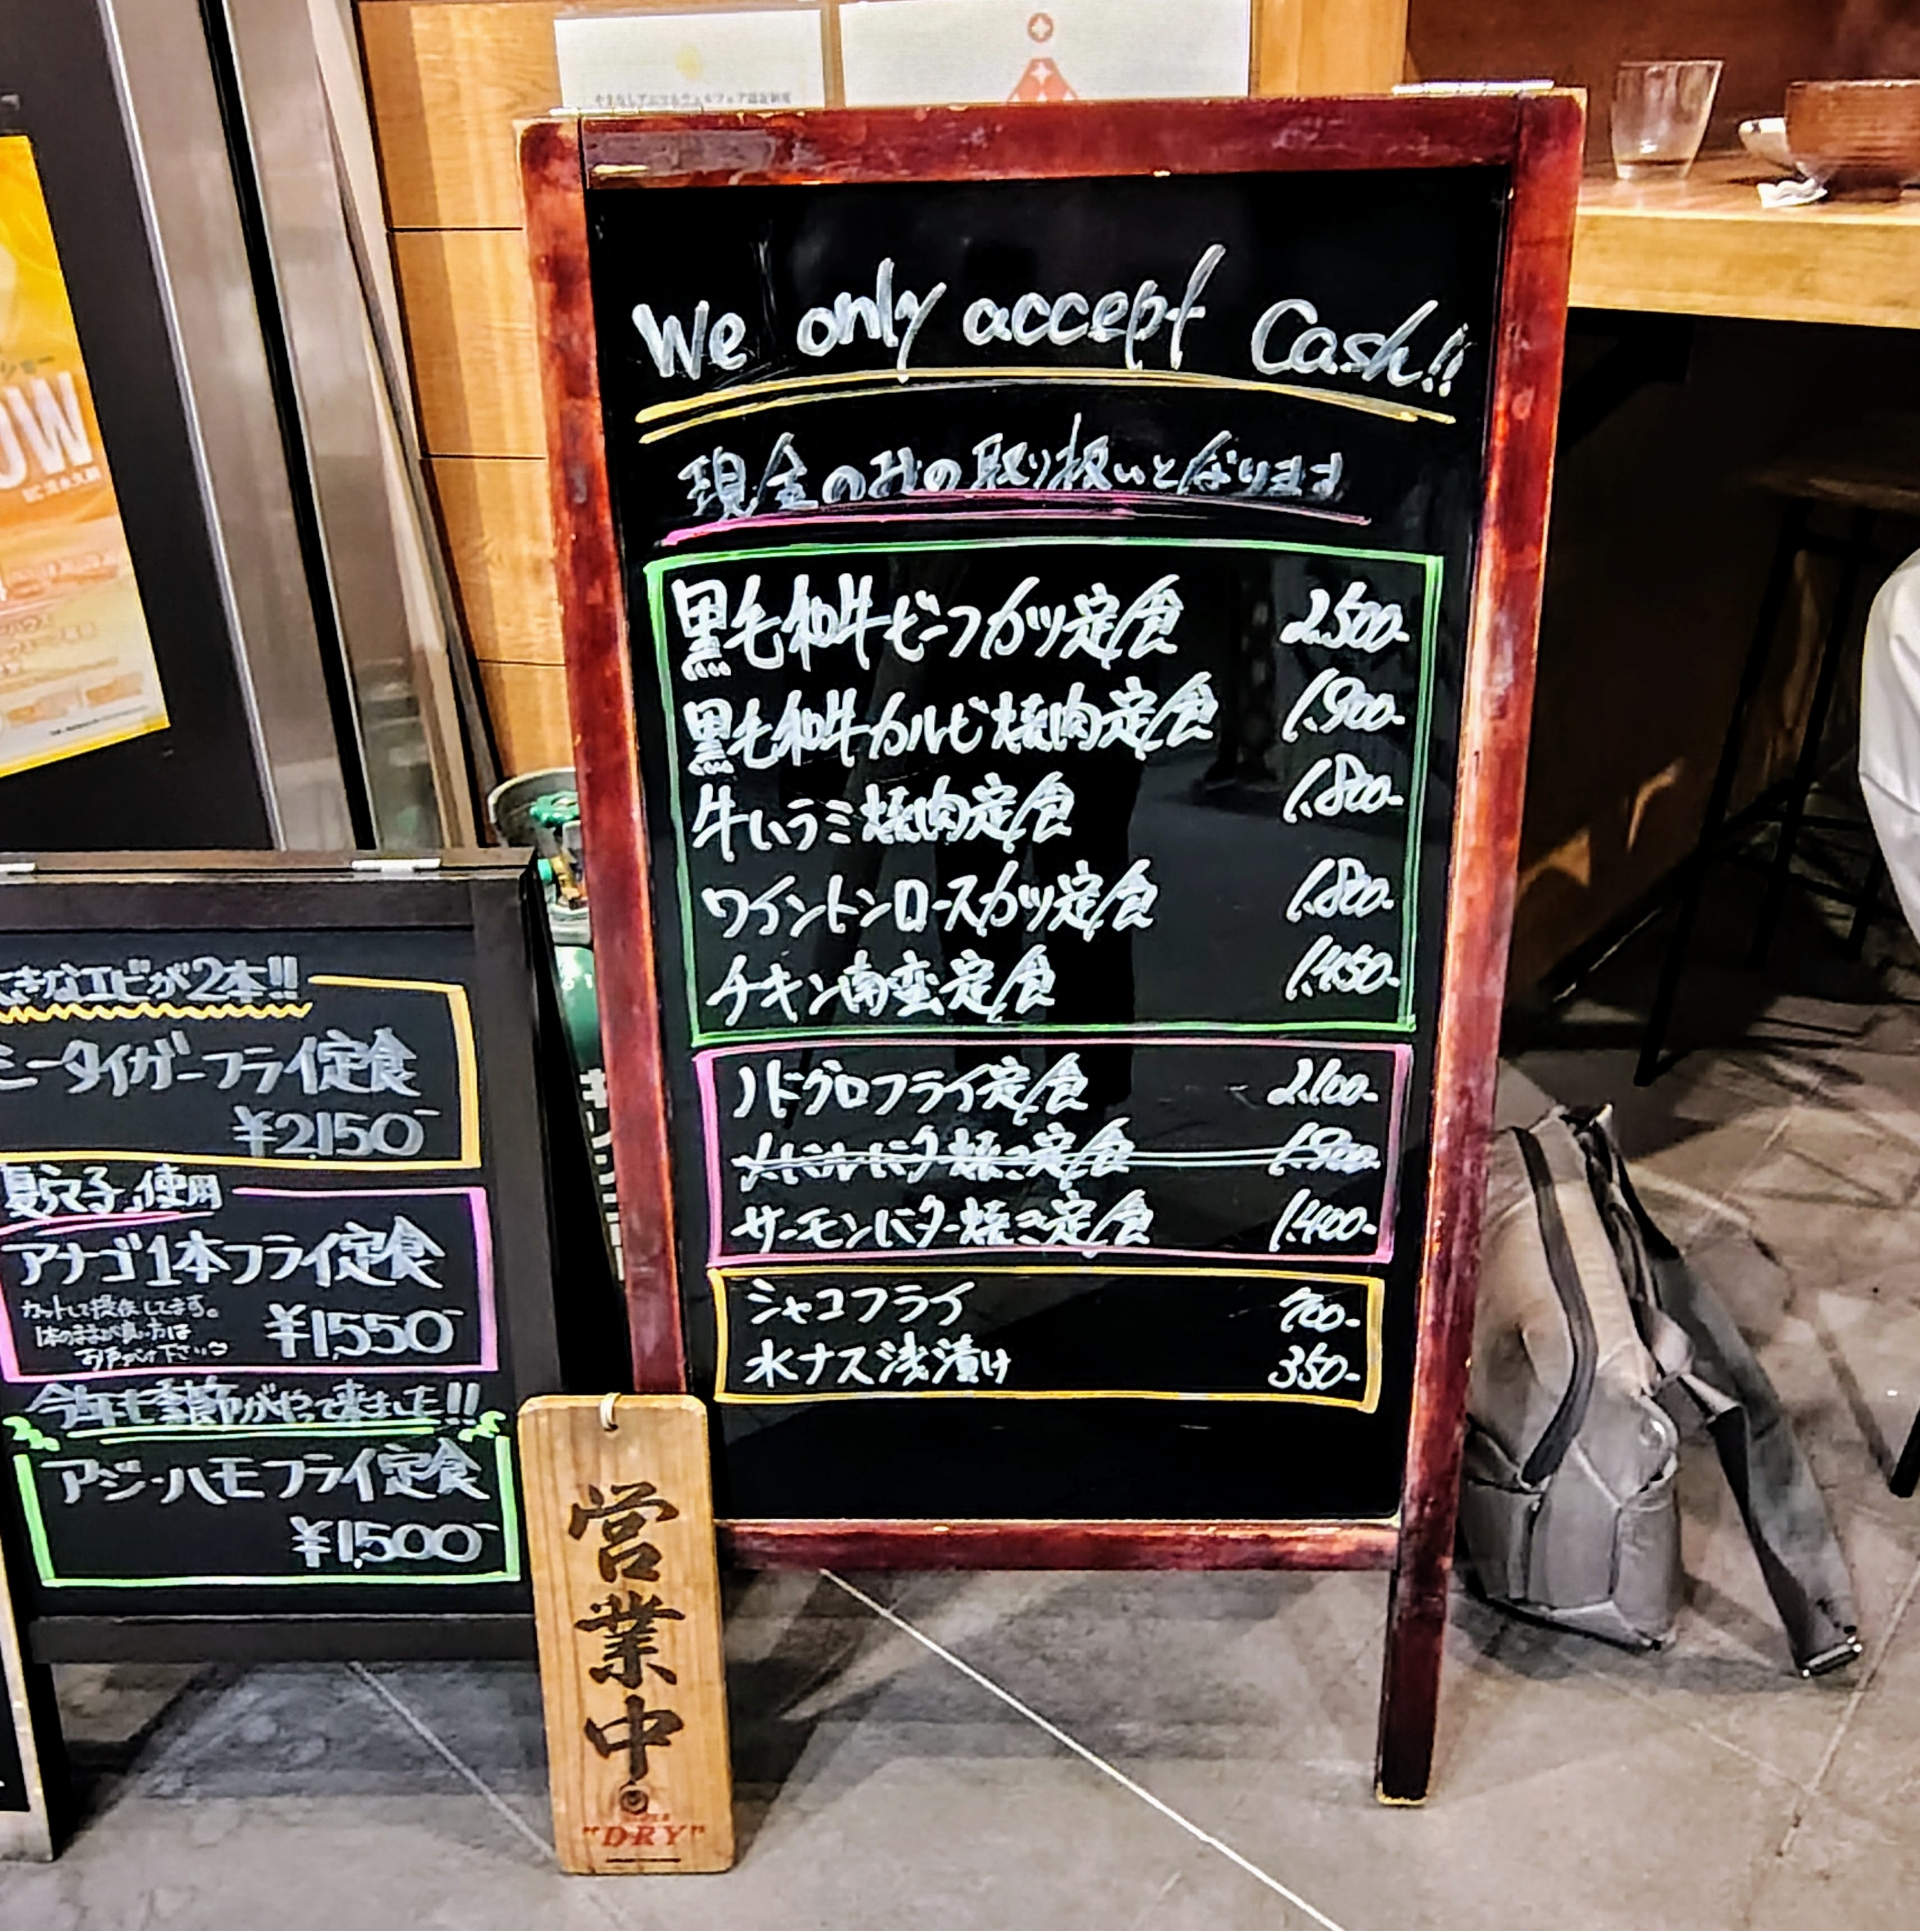 We only accept Cash!!
現金のみの取り扱いとなります
黒毛和牛ビーフカツ定食 2.500-
黒毛和牛カルビ焼肉定食 1.900-
牛ハラミ焼肉定食 1.800-
ワイントンロースカツ定食 1.800-
チキン南蛮定食 1.450-
ノドグロフライ定食 2.100-
メバルバター焼き定食 1.900-
サーモンバター焼き定食 1.400-
シャコフライ 700-
水ナス浅漬け 350-
きなエビが2本!!
ミータイガーフライ定食
¥2,150-
使用
アナゴ1本フライ定食
カットして提供してます。
1本のままが良い方は
お声がけ下さい
¥1,550-
今年も季節がやって来ました!!
アジ・ハモフライ定食
¥1,500-
営業中
"DRY"
OW